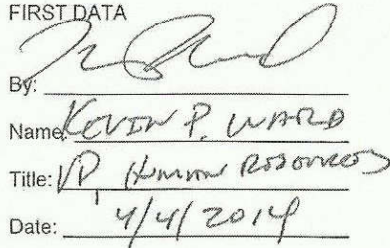 FIRST DATA
By:
Name: KEVIN P. WARD
Title: VP, HUMAN RESOURCES
Date: 4/4/2014